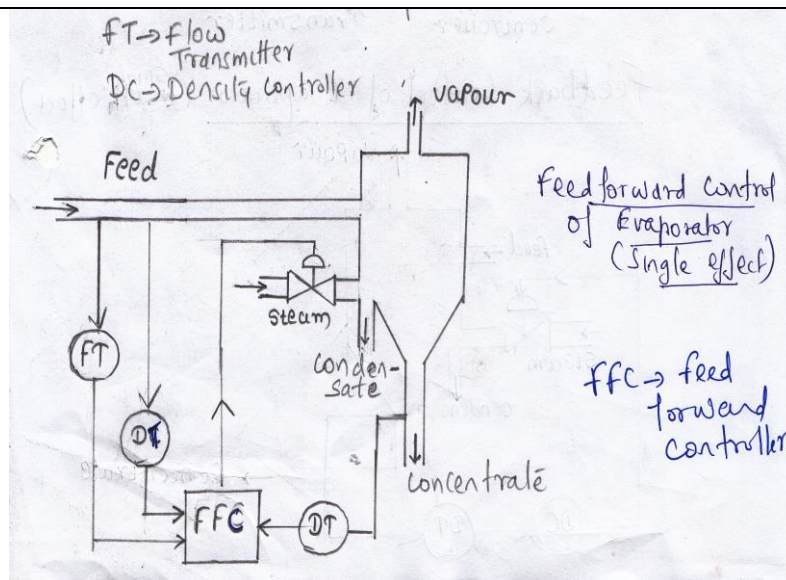 FT→Flow
Transmitter
DC→Density Controller
vapour
Feed
Feedforward control
of Evaporator
(Single effect)
steam
FT
Conden-
sate
FFC→feed
forward
controller
DT
concentrate
FFC
DT